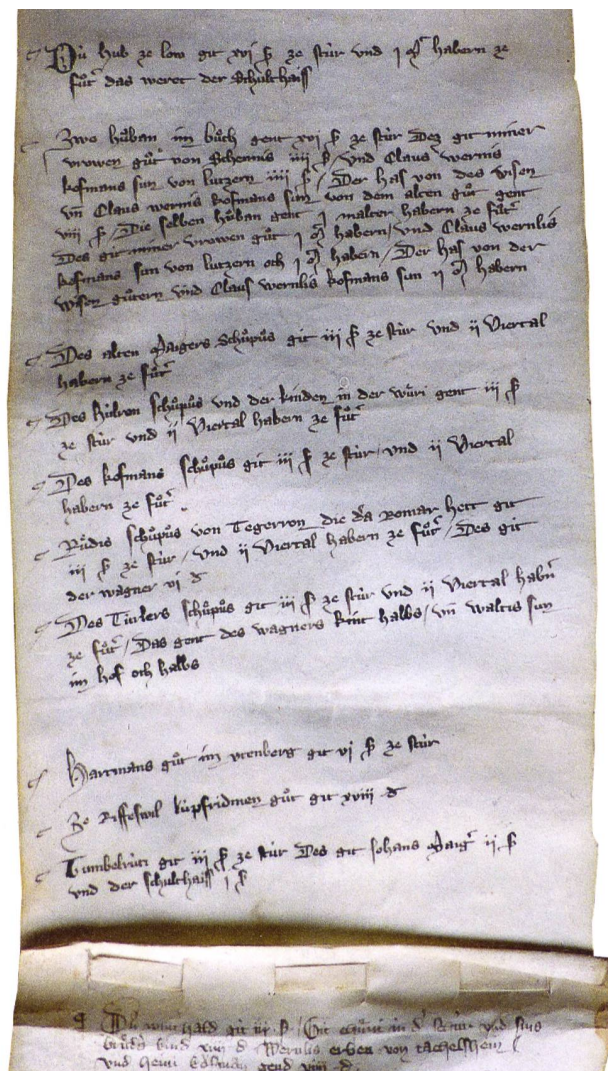 Dú hůb ze low git xvi ß ze stúr vnd i mt habern ze
fůtr das weret der Schultheiss
Zwo hůban im bůch gent xvi ß ze stúr Dez git miner
vrowen gůt von Schennis iiii ß / vnd Claus wernis
kofmans sun von lutzern iiii ß / Der has von des wisen
vn Claus wernis kofmans sun von dem alten gůt gent
viii ß / Die selben hůban gent i malter habern ze fůtr
Des git miner vrowen gůt i mt habern / vnd Claus wernlis
kofmans sun von lutzern och i mt habern / Der has von der
wisen gůtern vnd Claus wernlis kofmans sun ii mt habern
Des alten Maigers Schůpůs git iii ß ze stúr vnd ii Viertal
habern ze fůtr
Des schůpůs vnd der kinden in der wůri gent iii ß
ze stúr vnd ii Viertal habern ze fůtr
Des kofmans schůpůs git iii ß ze stúr vnd ii Viertal
habern ze fůtr
Růdis schůpůs von Tegerron die da Bomar hett git
iii ß ze stúr / vnd ii Viertal habern ze fůtr / Des git
der wagner vi d
Des Túrlers schůpůs git iii ß ze stúr vnd ii Viertal habn
ze fůtr / Das gent des wagners kint halbs / vn waltis sun
im hof och halbs
Hartmans gůt im vtenberg git vi ß ze stúr
Ze Riffeswil kúpfridmen gůt git xviii d
Tumbelrúti git iii ß ze stúr Des git Johans Maigr ii ß
vnd der schultheiss i ß
git iii ß / Git in dr vnd sins
brůdrs kind xviii d Wernlis erben von tachelshein
vnd heini gend viii d